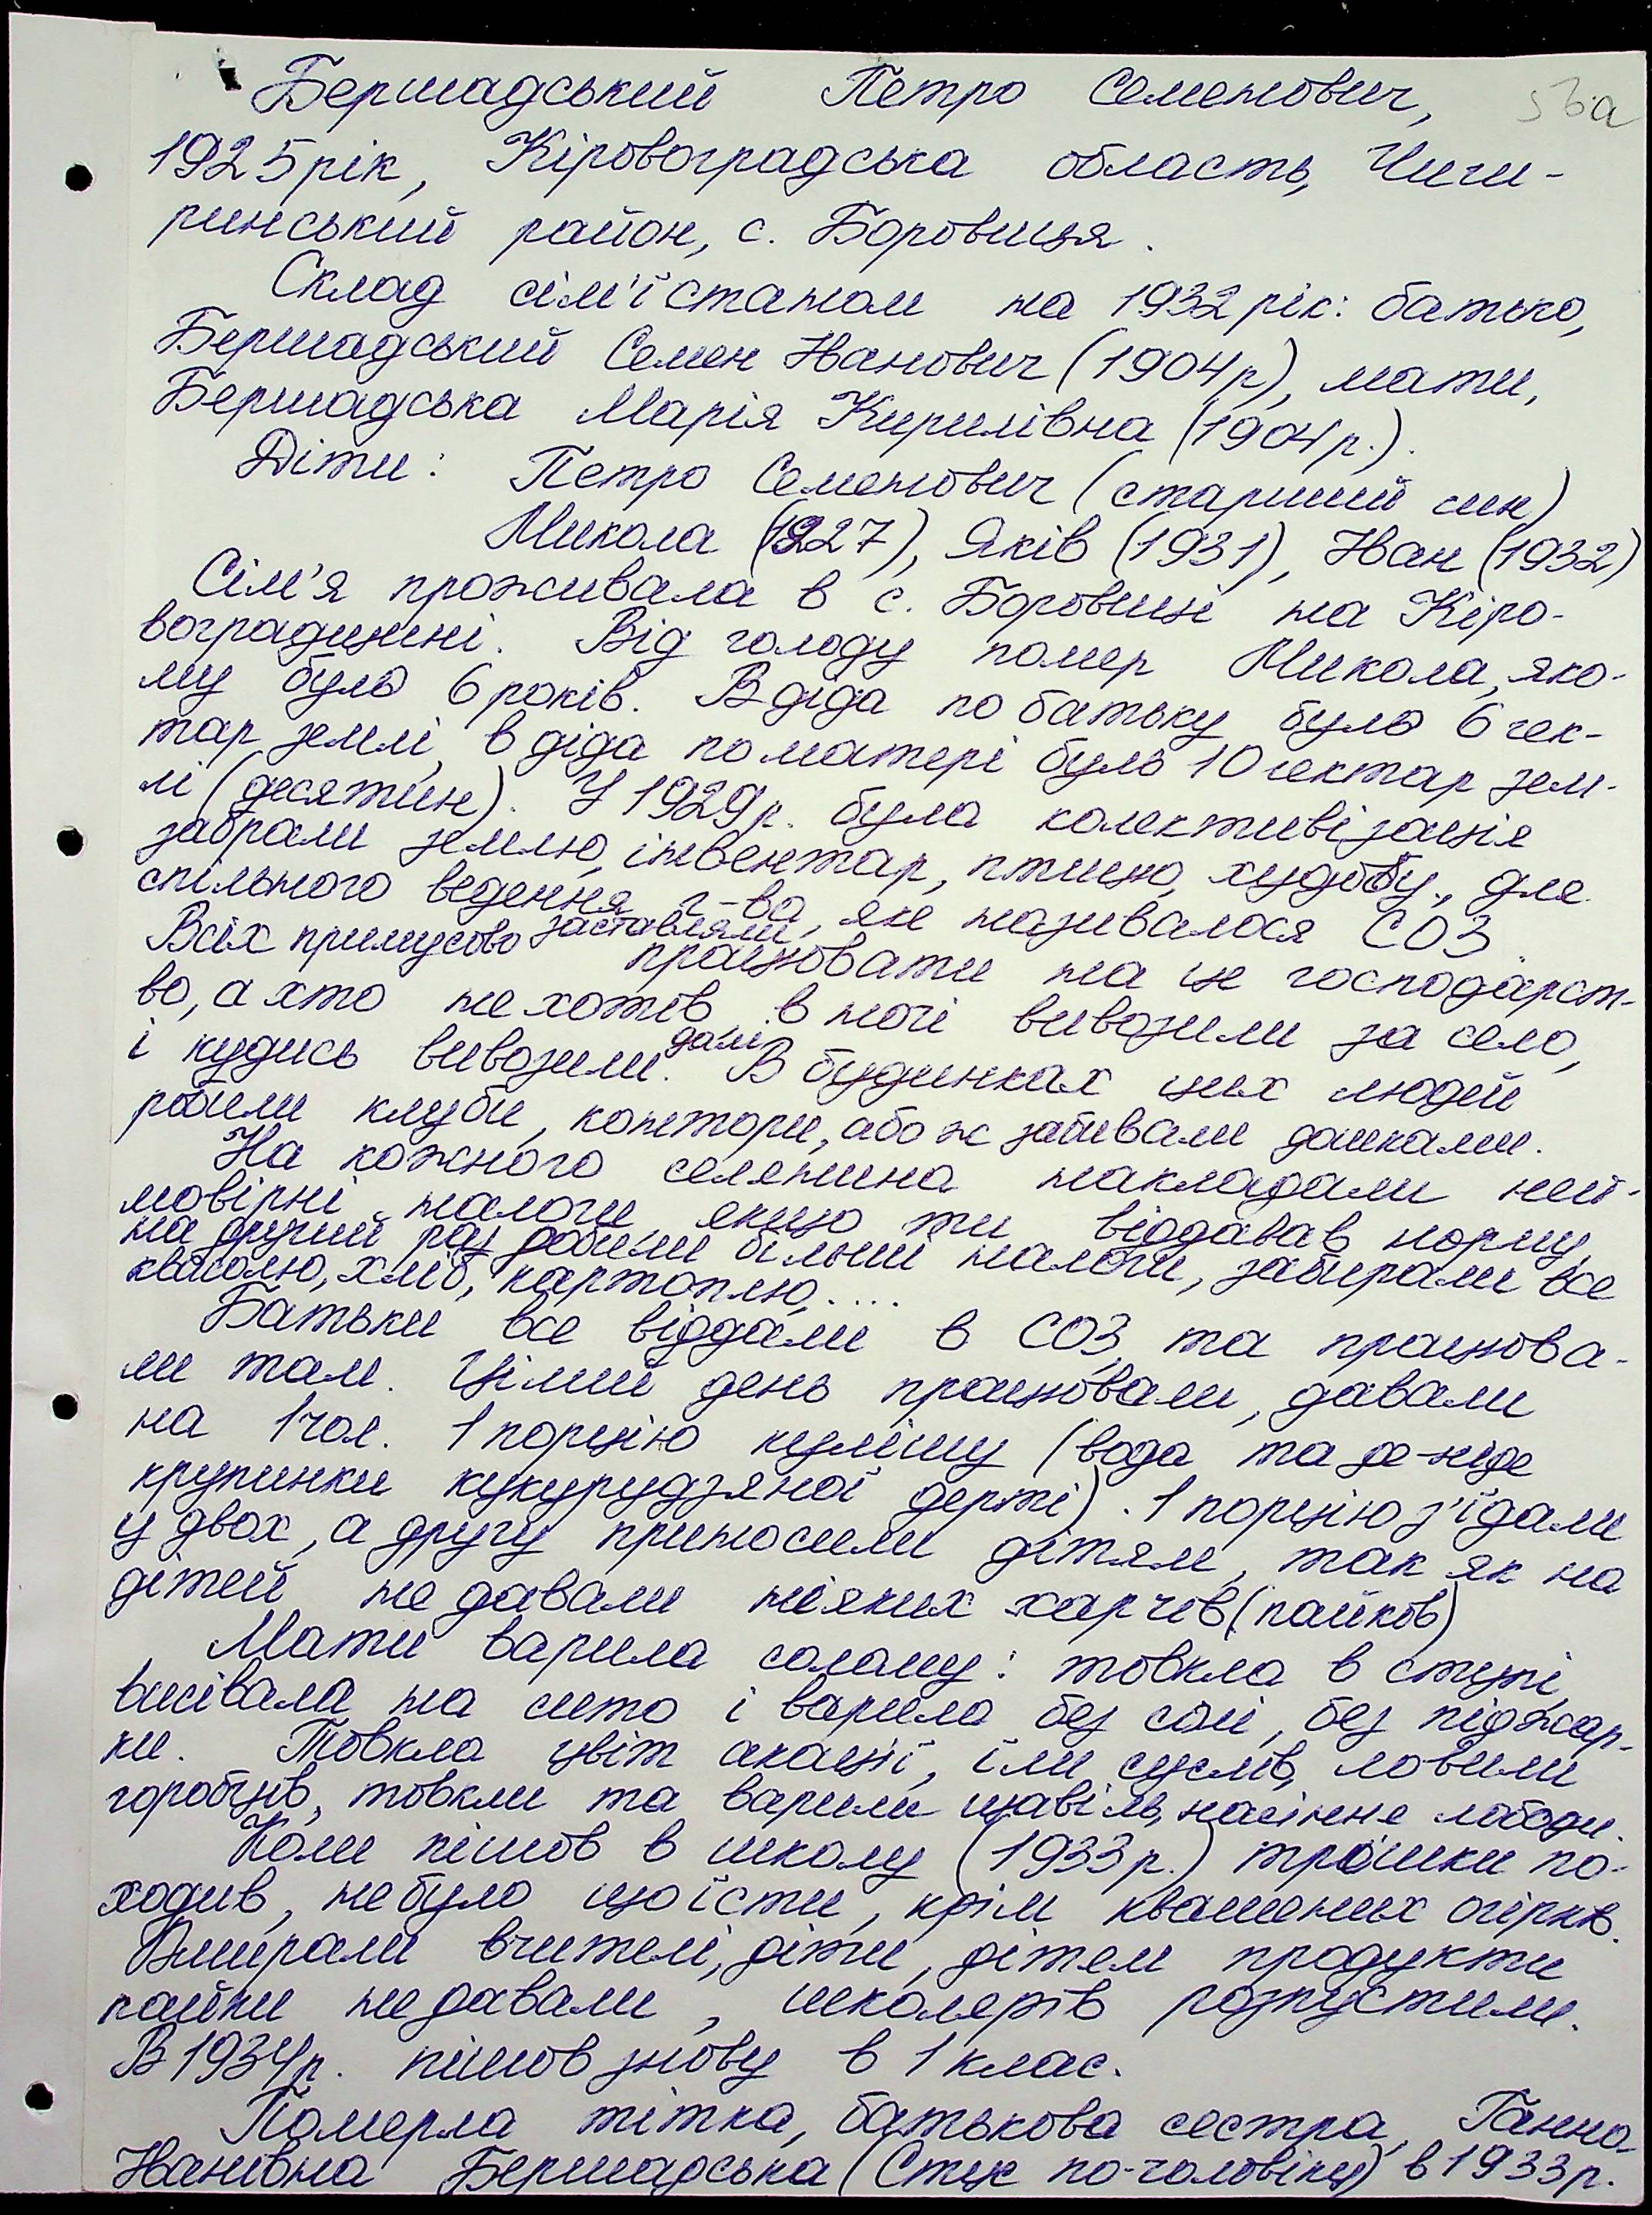 Бершадський Петро Семенович,
1925 рік, Кіровоградська область, Чиги-
ринський район, с. Боровиця.
Склад сім'ї станом на 1932 рік: батько,
Бершадський Семен Іванович (1904р), мати,
Бершадська Марія Кирилівна (1904р.).
Діти: Петро Семенович (старший син)
Микола (1927), Яків (1931), Іван (1932)
Сім'я проживала в с. Боровиці на Кіро-
воградщині. Від голоду помер Микола, яко-
му було 6 років. В діда по батьку було 6 гек-
тар землі, в діда по матері було 10 гектар зем-
лі (десятин). У 1929р. була колективізація
забрали землю, інвентар, птицю, худобу, для
спільного ведення г-ва, яке називалося СОЗ
Всіх примусово заставляли працювати на це господарст-
во, а хто не хотів в ночі вивозили за село,
і кудись вивозили далі. В будинках цих людей
робили клуби, контори, або ж забивали дошками.
На кожного селянина накладали ней-
мовірні налоги, якщо ти віддавав норму,
на другий раз робили більші налоги, забирали все
квасолю, хліб, картоплю, ....
Батьки все віддали в СОЗ та працюва-
ли там. Цілий день працювали, давали
на 1 чол. 1 порцію кулішу (вода та де-ніде
крупинки кукурудзяної дерті). 1 порцію з'їдали
у двох, а другу приносили дітям, так як на
дітей не давали ніяких харчів (пайків)
Мати варила солому: товкла в ступі,
висівала на сито і варила без солі, без піджар-
ки. Товкла цвіт акації, їли суслів, ловили
горобців, товкли та варили щавіль, насіння лободи.
Коли пішов в школу (1933р.) трошки по-
ходив, не було що їсти, крім квашених огірків.
Вмирали вчителі, діти, дітям продукти
пайки не давали, школярів розпустили.
В 1934р. пішов знову в 1 клас.
Померла тітка, батькова сестра, Ганна
Іванівна Бершадська (Стус по-чоловіку) в 1933р.